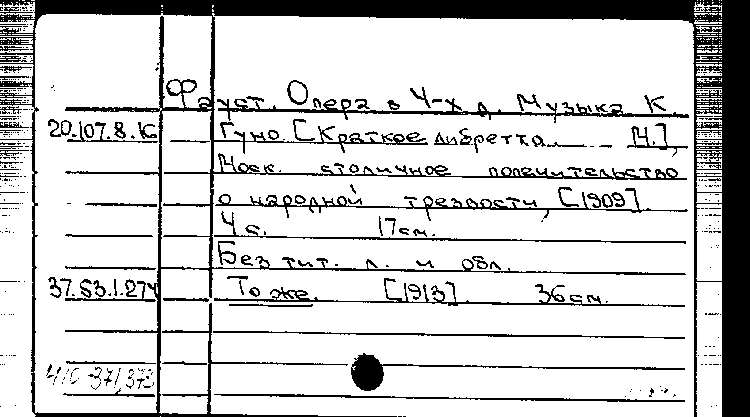 Фауст. Опера в 4-х д. Музыка К.
20.107.8.16 Гуно [Краткое либретто. М.],
Моск. столичное попечительство
о народной трезвости, [1909].
4 с. 17 см.
Без тит. л. и обл.
37.53.1.274 То же. [1913]. 36 см.